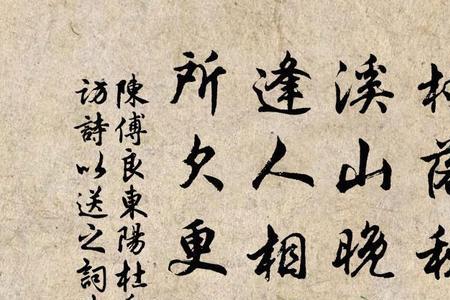 溪山晚
逢人相
所久更
陳傅良東陽杜
訪詩以送之詞